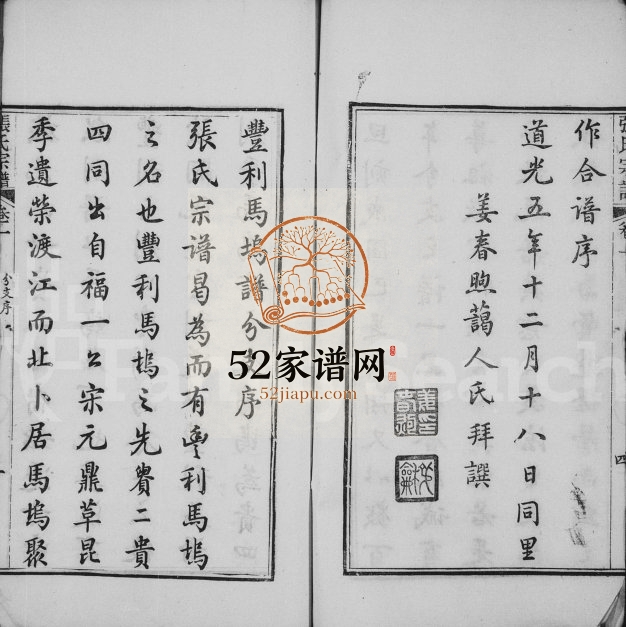 作合譜序
道光五年十二月十八日同里
姜春煦藹人氏拜譔
豐利馬塢譜分支序
張氏宗譜曷為而有豐利馬塢
之名也豐利馬塢之先貴二貴
四同出自福一公宋元鼎革昆
季遺榮渡江而北卜居馬塢聚
張氏宗譜 卷一
分支序
一
52家谱网
52jiapu.com